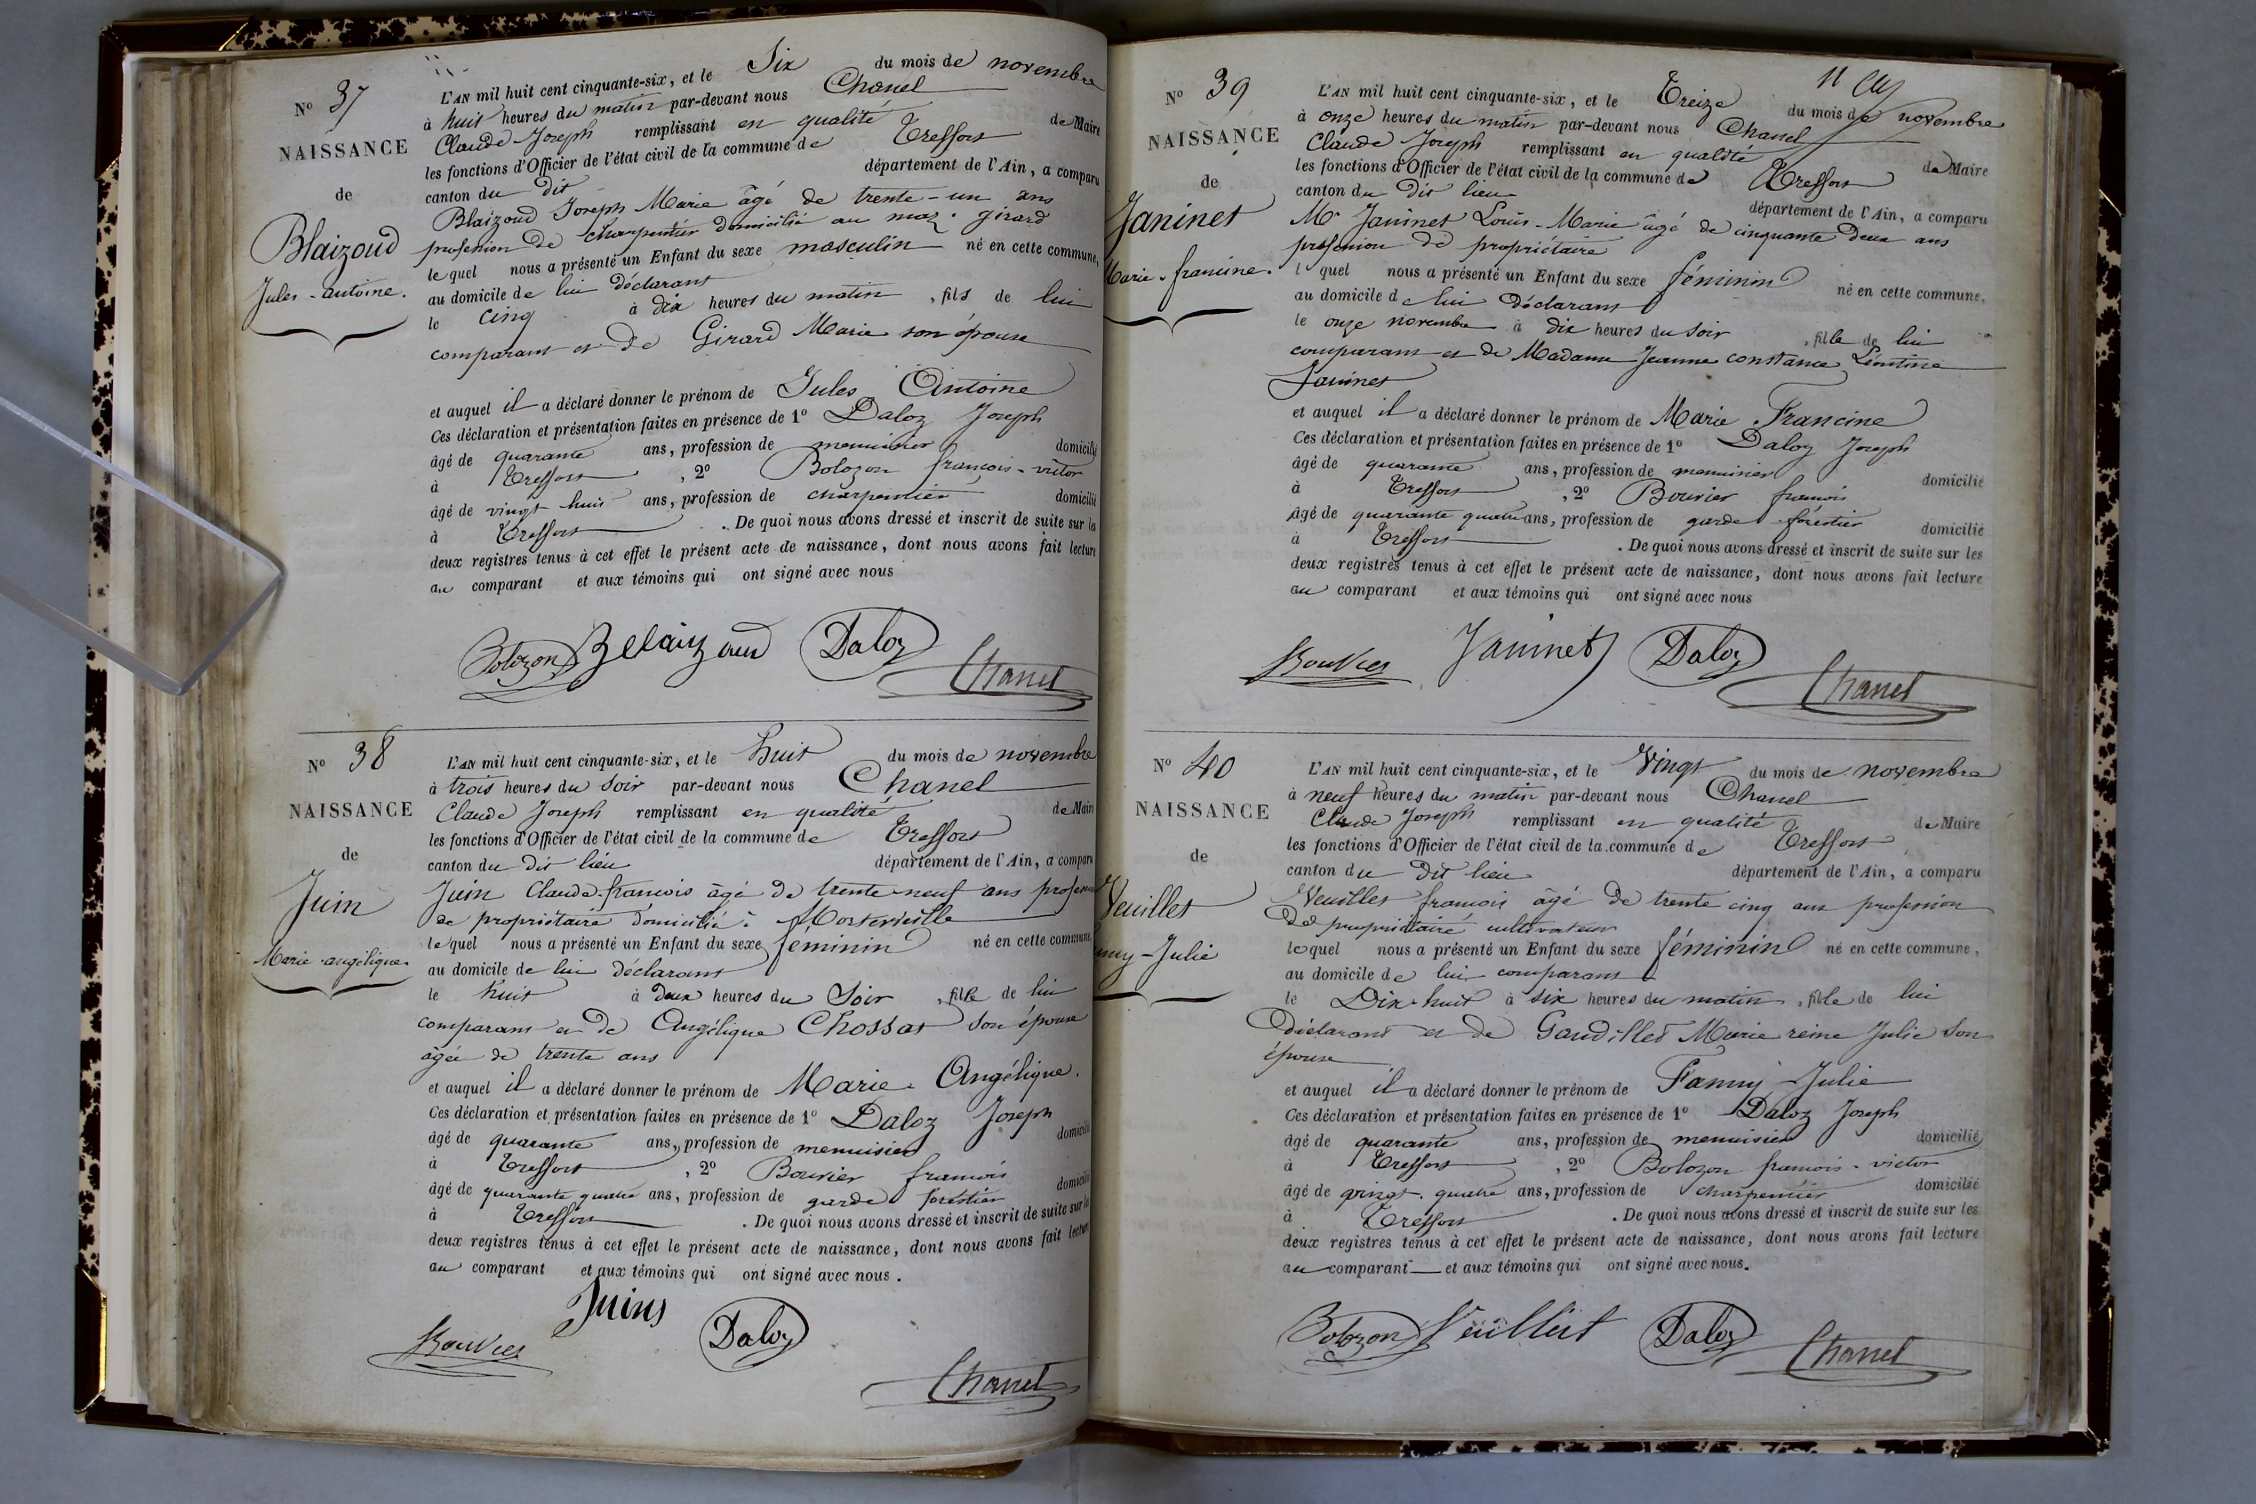 N° 37
NAISSANCE
de
Blaizoud
Jules-antoine.
L'AN mil huit cent cinquante-six, et le Six du mois de novembre
à huit heures du matin par-devant nous Chanel
Claude Joseph remplissant en qualité de Maire
les fonctions d'Officier de l'état civil de la commune de Treffort
canton du dit département de l'Ain, a comparu
Blaizoud Joseph Marie âgé de trente-un ans
profession de charpentier domicilié au maz. girard
lequel nous a présenté un Enfant du sexe masculin né en cette commune,
au domicile de lui déclarant
le cinq à dix heures du matin, fils de lui
comparant et de Girard Marie son épouse
et auquel il a déclaré donner le prénom de Jules Antoine
Ces déclaration et présentation faites en présence de 1° Daloz Joseph
âgé de quarante ans, profession de menuisier domicilié
à Treffort, 2° Bolozon françois-victor
âgé de vingt huit ans, profession de charpentier domicilié
à Treffort. De quoi nous avons dressé et inscrit de suite sur les
deux registres tenus à cet effet le présent acte de naissance, dont nous avons fait lecture
au comparant et aux témoins qui ont signé avec nous
Bolozon Belaizoud Daloz
Chanel
N° 38
NAISSANCE
de
Juin
Marie-angélique.
L'AN mil huit cent cinquante-six, et le huit du mois de novembre
à trois heures du soir par-devant nous Chanel
Claude Joseph remplissant en qualité de Maire
les fonctions d'Officier de l'état civil de la commune de Treffort
canton du dit lieu département de l'Ain, a comparu
Juin Claude françois âgé de trente neuf ans profession
de propriétaire domicilié à Montervieille
lequel nous a présenté un Enfant du sexe féminin né en cette commune
au domicile de lui déclarant
le huit à deux heures du Soir, fille de lui
comparant et de Angélique Chossat son épouse
âgée de trente ans
et auquel il a déclaré donner le prénom de Marie-Angélique.
Ces déclaration et présentation faites en présence de 1° Daloz Joseph
âgé de quarante ans, profession de menuisier domicilié
à Treffort, 2° Bouvier francois
âgé de quarante quatre ans, profession de garde forestier domicilié
à Treffort. De quoi nous avons dressé et inscrit de suite sur les
deux registres tenus à cet effet le présent acte de naissance, dont nous avons fait lecture
au comparant et aux témoins qui ont signé avec nous.
Juins
Bouvier Daloz
Chanel
N° 39
NAISSANCE
de
Janinet
Marie-francine.
11
L'AN mil huit cent cinquante-six, et le Treize du mois de novembre
à onze heures du matin par-devant nous Chanel
Claude Joseph remplissant en qualité de Maire
les fonctions d'Officier de l'état civil de la commune de Treffort
canton du dit lieu département de l'Ain, a comparu
Mr Janinet Louis-Marie âgé de cinquante deux ans
profession de propriétaire
lequel nous a présenté un Enfant du sexe féminin né en cette commune,
au domicile de lui déclarant
le onze novembre à dix heures du Soir, fille de lui
comparant et de Madame Jeanne constance Léontine
Janinet
et auquel il a déclaré donner le prénom de Marie Francine
Ces déclaration et présentation faites en présence de 1° Daloz Joseph
âgé de quarante ans, profession de menuisier domicilié
à Treffort, 2° Bouvier francois
âgé de quarante quatre ans, profession de garde forestier domicilié
à Treffort. De quoi nous avons dressé et inscrit de suite sur les
deux registres tenus à cet effet le présent acte de naissance, dont nous avons fait lecture
au comparant et aux témoins qui ont signé avec nous
Bouvier Janinet Daloz
Chanel
N° 40
NAISSANCE
de
Veuillet
nny-Julie
L'AN mil huit cent cinquante-six, et le Vingt du mois de novembre
à neuf heures du matin par-devant nous Chanel
Claude Joseph remplissant en qualité de Maire
les fonctions d'Officier de l'état civil de la commune de Treffort
canton du dit lieu département de l'Ain, a comparu
Veuillet francois âgé de trente cinq ans profession
de propriétaire cultivateur
lequel nous a présenté un Enfant du sexe féminin né en cette commune,
au domicile de lui comparant
le Dix-huit à six heures du matin, fille de lui
déclarant et de Gaudillet Marie reine Julie Son
épouse
et auquel il a déclaré donner le prénom de Fanny-Julie
Ces déclaration et présentation faites en présence de 1° Daloz Joseph
âgé de quarante ans, profession de menuisier domicilié
à Treffort, 2° Bolozon francois-victor
âgé de vingt-quatre ans, profession de charpentier domicilié
à Treffort. De quoi nous avons dressé et inscrit de suite sur les
deux registres tenus à cet effet le présent acte de naissance, dont nous avons fait lecture
au comparant et aux témoins qui ont signé avec nous.
Bolozon Veuillet Daloz
Chanel